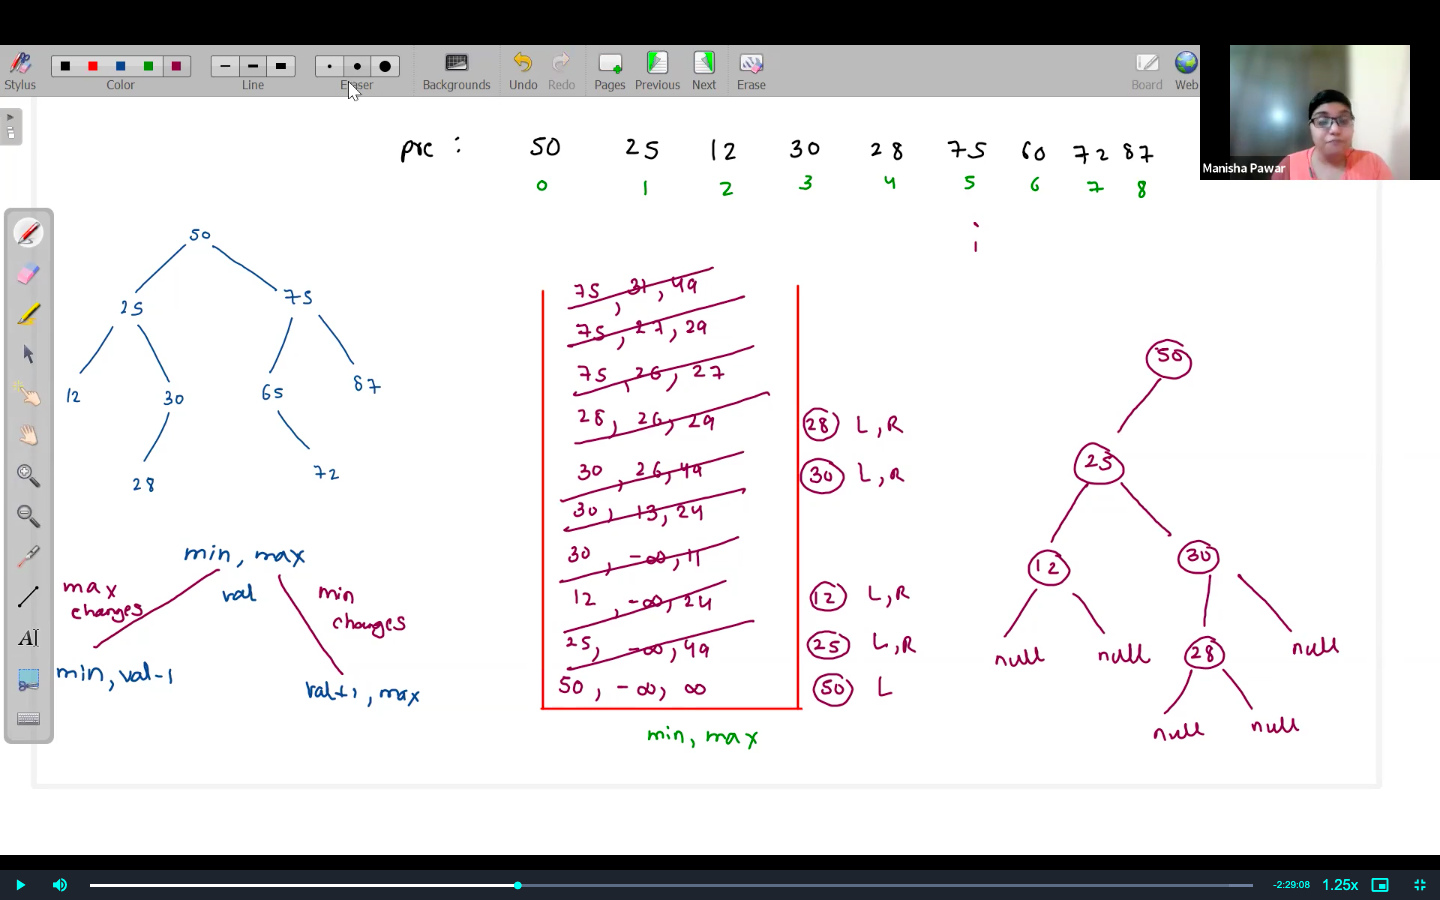 Stylus Color Line Eraser Backgrounds Undo Redo Pages Previous Next Erase Board Web
Manisha Pawar
pre : 50 25 12 30 28 75 60 72 87
0 1 2 3 4 5 6 7 8
i
50
25 75
12 30 65 87
28 72
min, max
val
max changes
min changes
min, val-1
val+1, max
75, 31, 49
75, 27, 29
75, 26, 27
28, 26, 29
30, 26, 49
30, 13, 24
30, -∞, 11
12, -∞, 24
25, -∞, 49
50, -∞, ∞
min, max
28 L, R
30 L, R
12 L, R
25 L, R
50 L
50
25
12 30
null null 28 null
null null
-2:29:08 1.25x